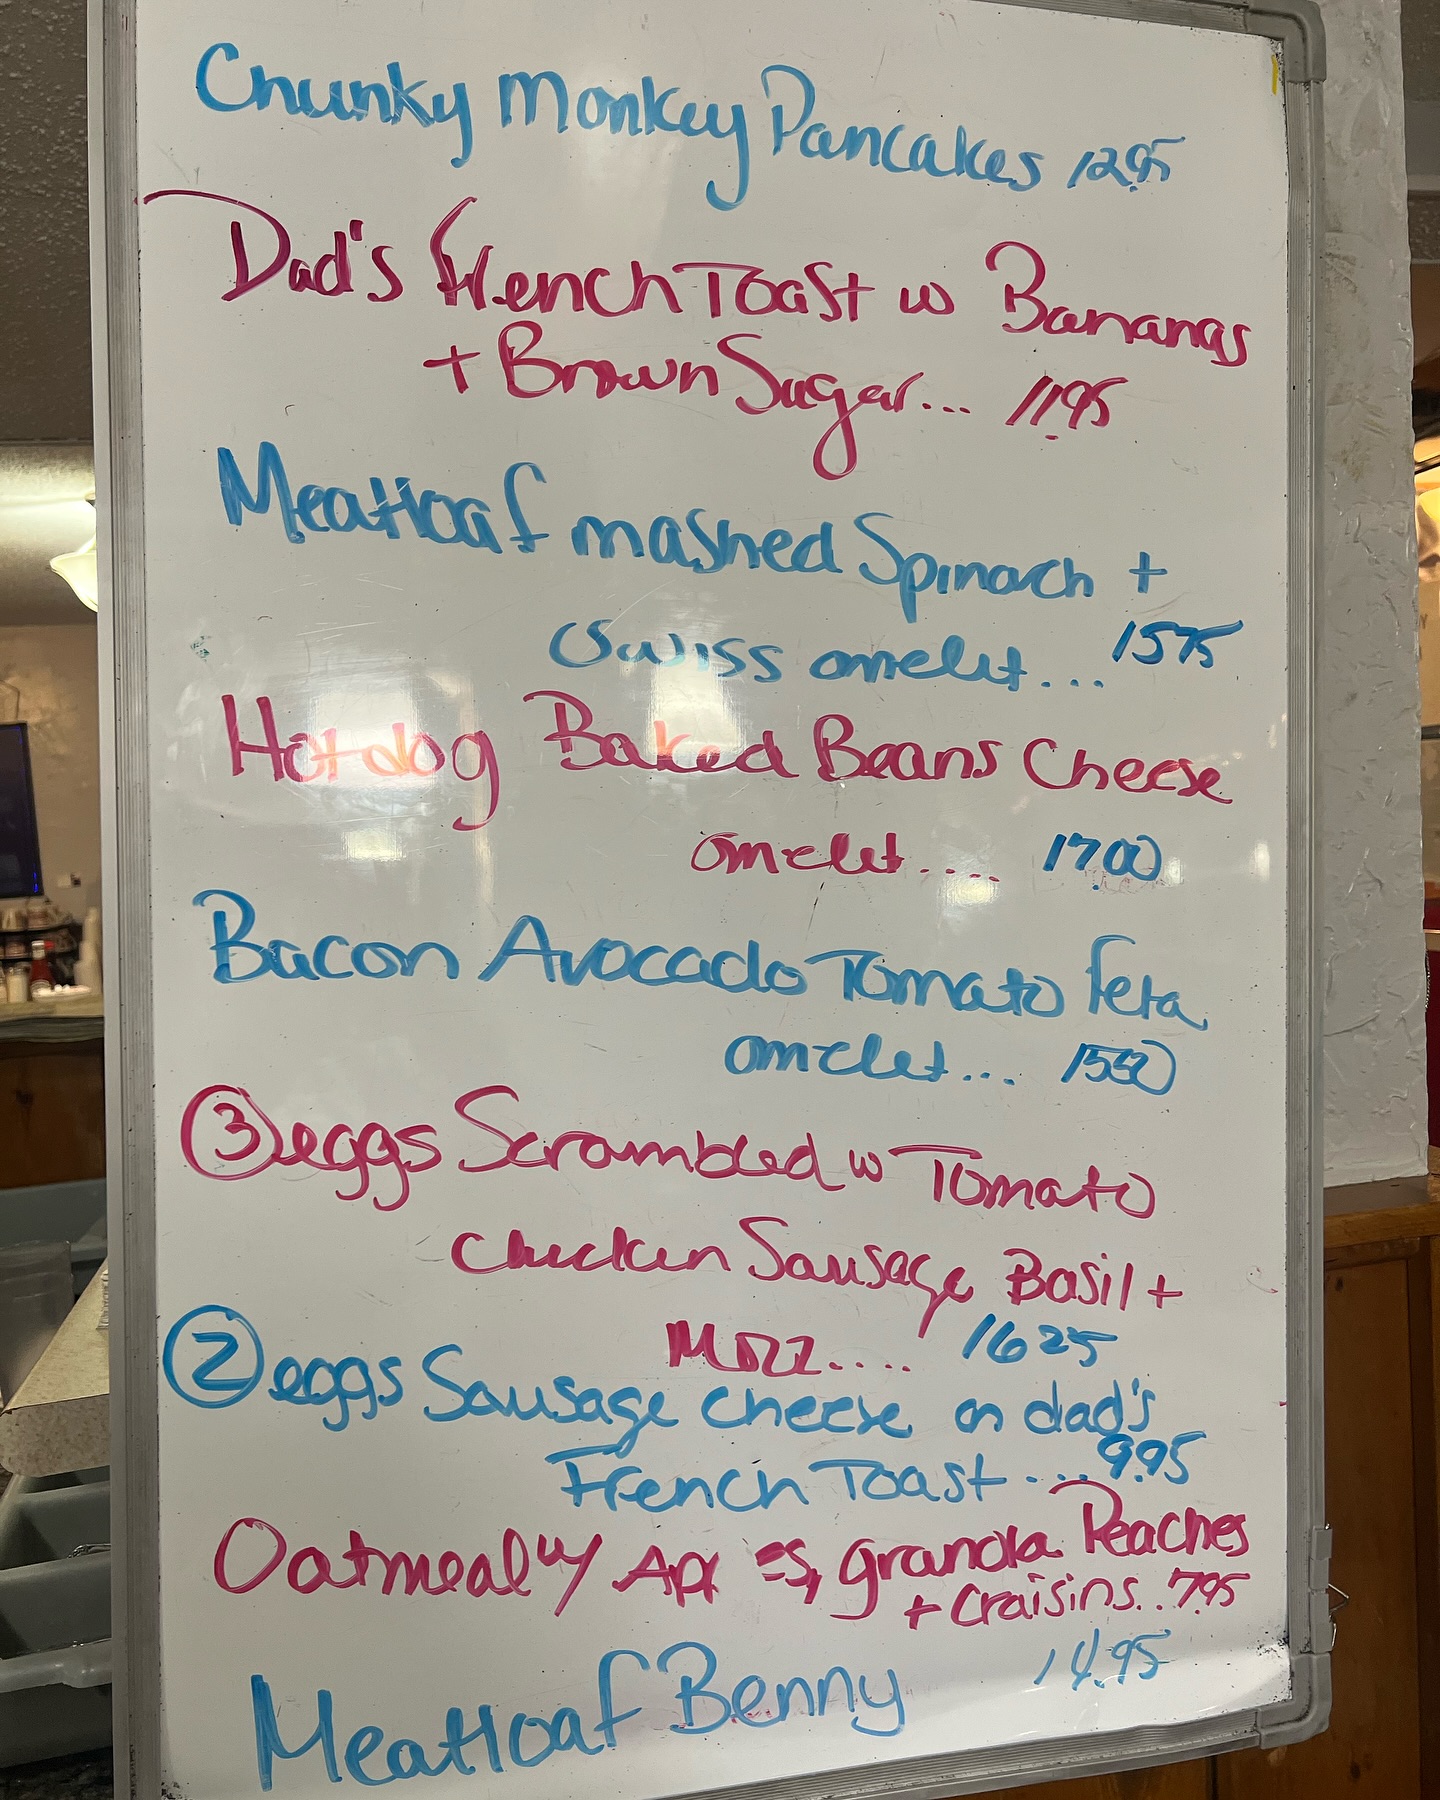 Chunky Monkey Pancakes 12.95
Dad's French Toast w Bananas
+ Brown Sugar... 11.95
Meatloaf mashed Spinach +
Swiss omelet... 15.75
Hotdog Baked Beans Cheese
omelet.... 17.00
Bacon Avocado Tomato Feta
omelet... 15.50
③ eggs Scrambled w Tomato
Chicken Sausage Basil +
Mozz.... 16 25
② eggs Sausage Cheese on dad's
French Toast ... 9.95
Oatmeal w/ granola Peaches
+ Craisins.. 7.95
Meatloaf Benny 14.95